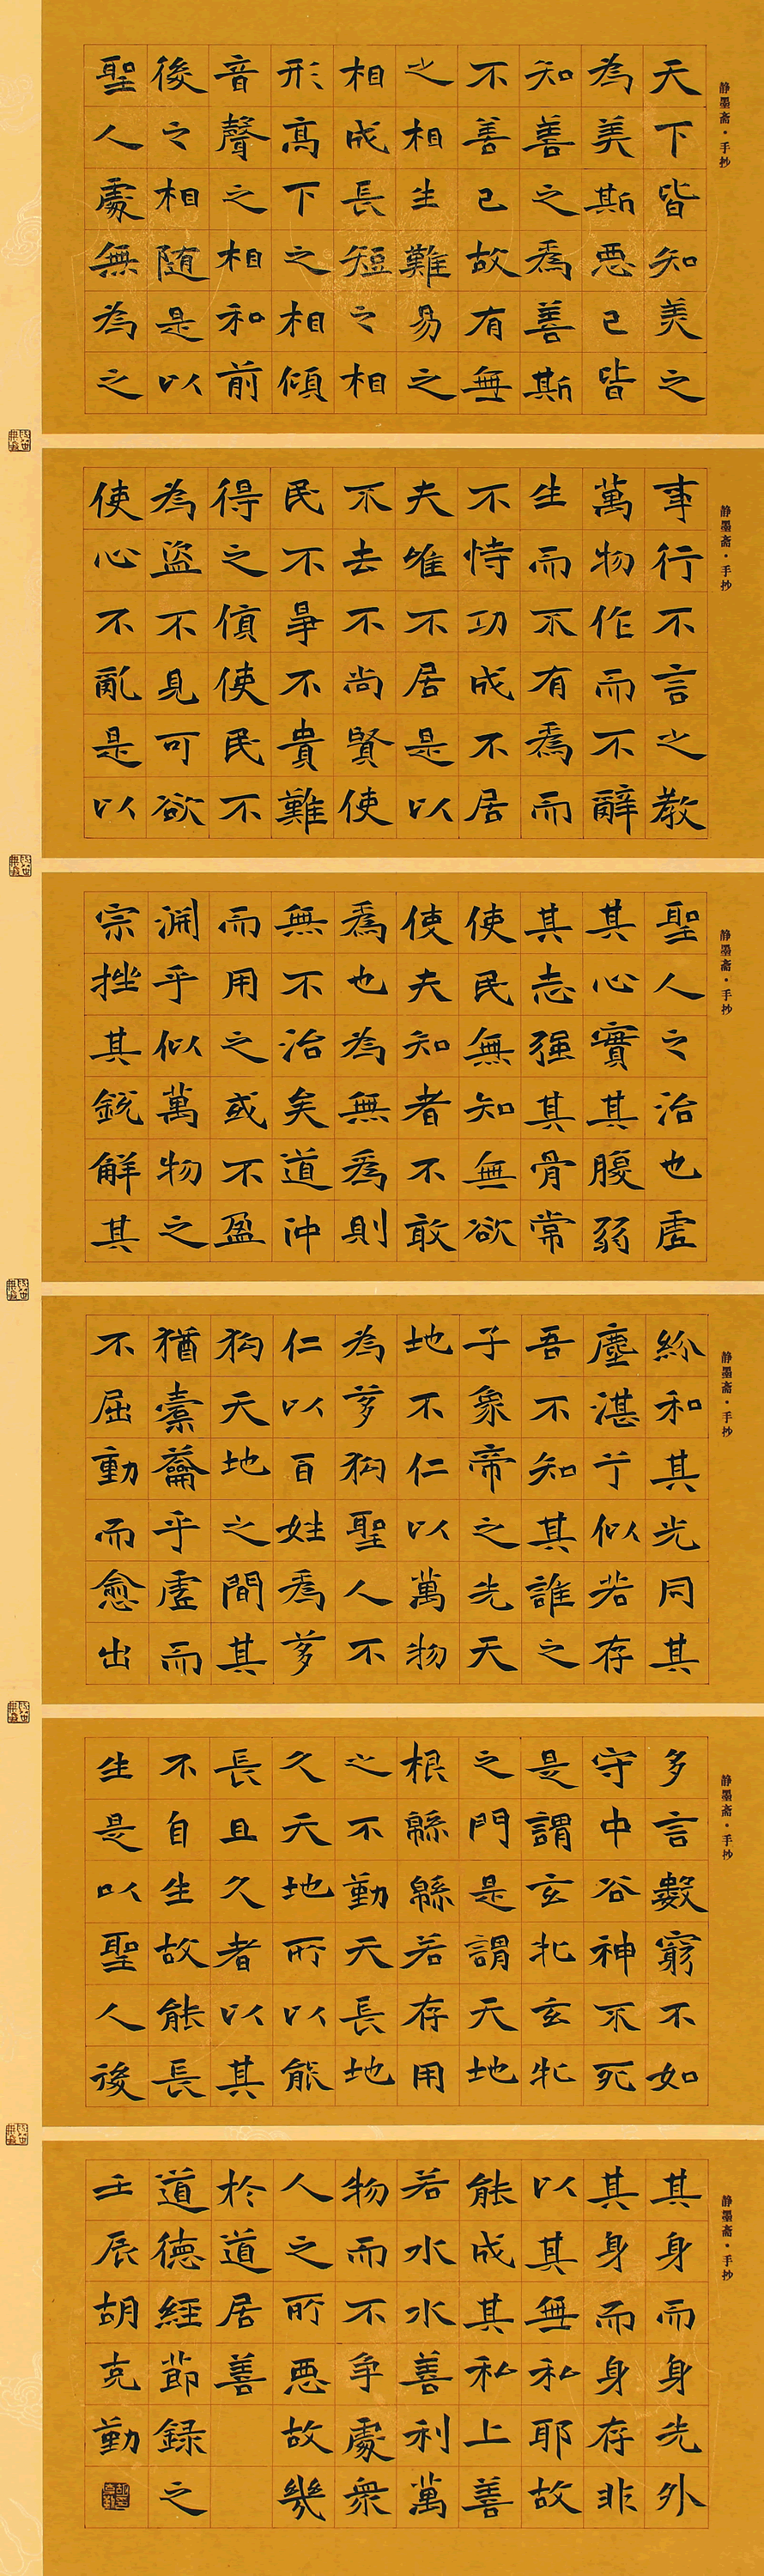 静墨斋·手抄
天下皆知美之
為美斯惡已皆
知善之為善斯
不善已故有無
之相生難易之
相成長短之相
形高下之相傾
音聲之相和前
後之相隨是以
聖人處無為之
静墨斋·手抄
事行不言之教
萬物作而不辭
生而不有為而
不恃功成不居
夫唯不居是以
不去不尚賢使
民不爭不貴難
得之貨使民不
為盜不見可欲
使心不亂是以
静墨斋·手抄
聖人之治也虛
其心實其腹弱
其志强其骨常
使民無知無欲
使夫知者不敢
為也為無為則
無不治矣道沖
而用之或不盈
淵乎似萬物之
宗挫其銳解其
静墨斋·手抄
紛和其光同其
塵湛兮似若存
吾不知其誰之
子象帝之先天
地不仁以萬物
為芻狗聖人不
仁以百姓為芻
狗天地之間其
猶橐籥乎虛而
不屈動而愈出
静墨斋·手抄
多言數窮不如
守中谷神不死
是謂玄牝玄牝
之門是謂天地
根緜緜若存用
之不勤天長地
久天地所以能
長且久者以其
不自生故能長
生是以聖人後
静墨斋·手抄
其身而身先外
其身而身存非
以其無私耶故
能成其私上善
若水水善利萬
物而不争處衆
人之所惡故幾
於道居善
道德經節録之
壬辰胡克勤